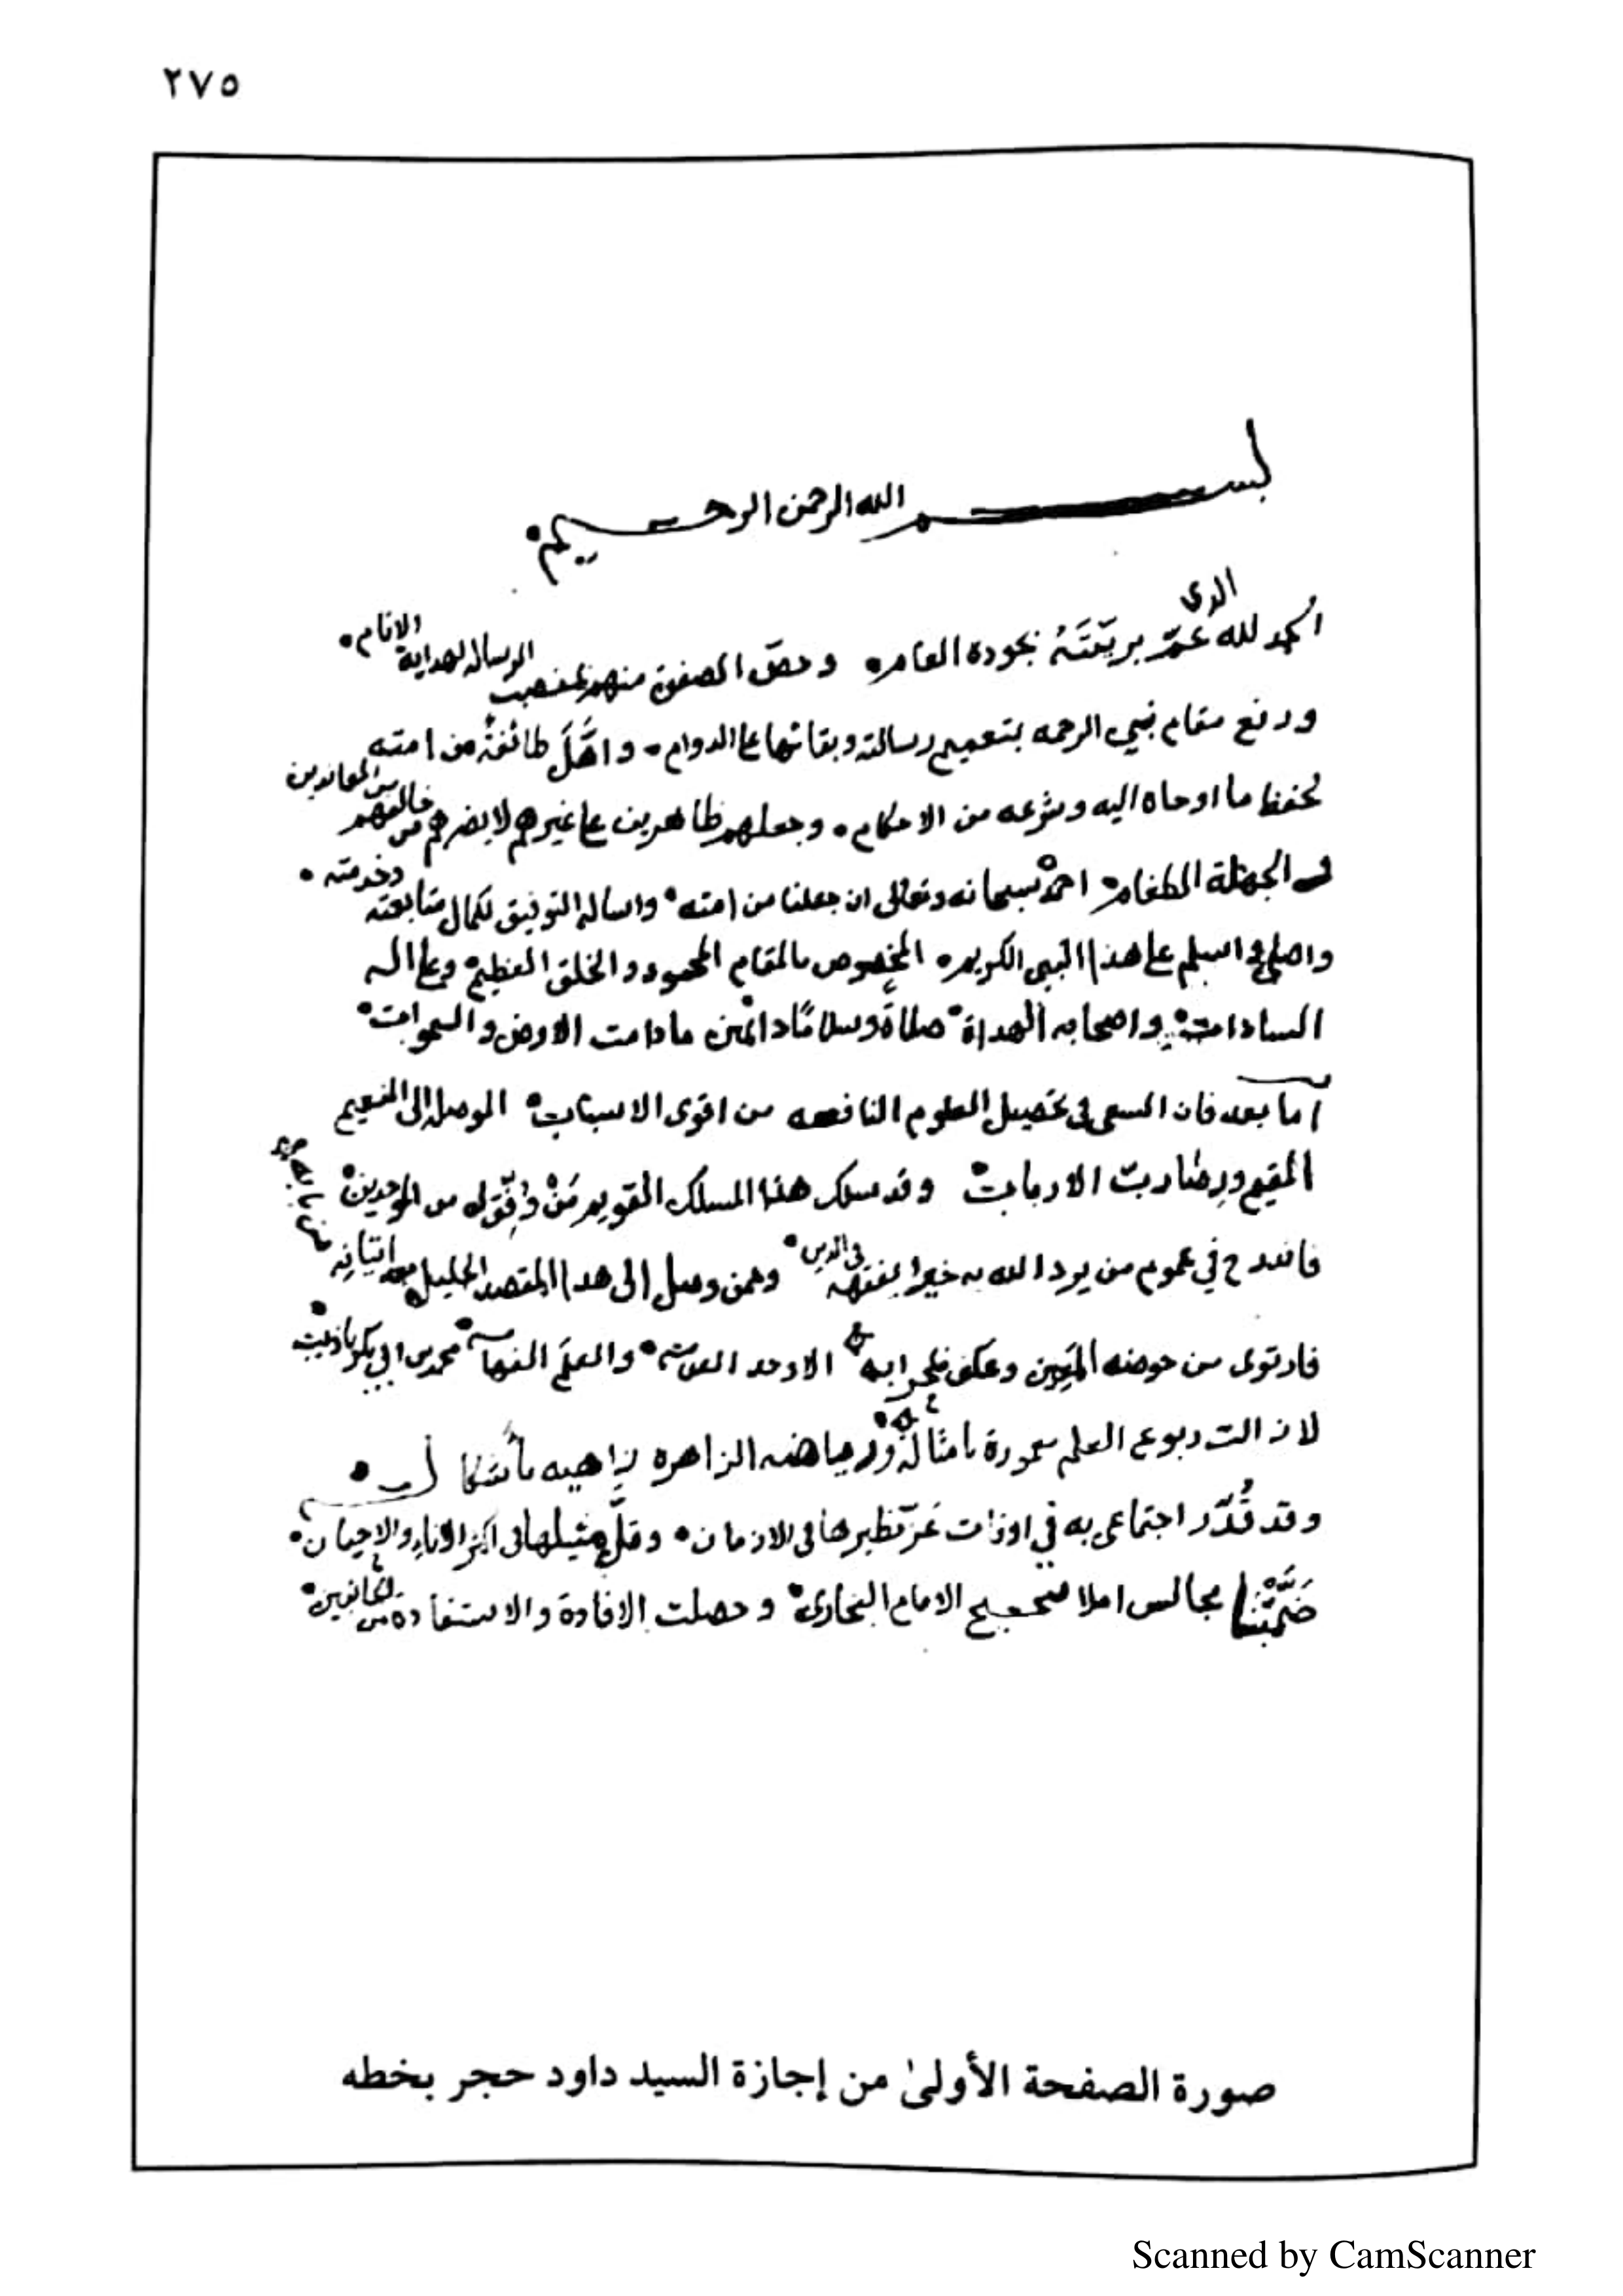 ٢٧٥
بسم الله الرحمن الرحيم
الحمد لله الذى عمّ بريّتَهُ بجوده العام وخصّ الصفوة منهم بمنصب الرساله لهداية الانام
ورفع مقام نبيى الرحمه بتعميم رسالته وبقائها على الدوام واهَّلَ طائفةً من امته
لحفظ ما اوحاه اليه وشرعه من الاحكام وجعلهم ظاهرين على غيرهم لا يضرهم من خالفهم من المعاندين
الجهلة الطغام احمده سبحانه وتعالى ان جعلنا من امته واساله التوفيق لكمال متابعته وخدمته
واصلى واسلم على هذا النبى الكريم المخصوص بالمقام المحمود والخلق العظيم وعلى اله
السادات واصحابه الهداة صلاةً وسلامًا دائمين ما دامت الارض والسموات
اما بعد فان السعى فى تحصيل العلوم النافعه من اقوى الاسباب الموصل الى النعيم
المقيم ورضا رب الارباب وقد سلك هذا المسلك القويم مَنْ وفّقه له من الموحدين
فاندرج في عموم من يرد الله به خيرا يفقهه فى الدين وممن وصل الى هذا المقصد الجليل
فارتوى من حوضه المَعِين وعكف الاوحد والعلَم الفهامه محمد بن ابى بكر باذيب
لا زالت ربوع العلم معمورة بامثاله ورياضه الزاهره زاهيه باشكاله
وقد قُدّر اجتماعى به في اوقات عَزّ نظيرها فى الازمان وقلّ مثيلها فى اكثر الاناء والاحيان
ضَمَّتْنا مجالس املا صحيح الامام البخارى وحصلت الافادة والاستفادة من الجانبين
صورة الصفحة الأولىٰ من إجازة السيد داود حجر بخطه
Scanned by CamScanner